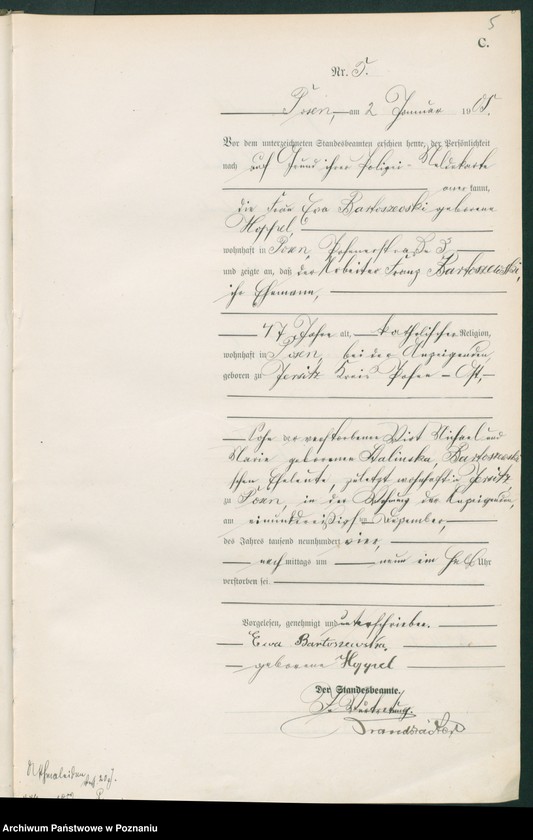 5
C.
Nr. 5.
Posen, am 2 Januar 1905.
Vor dem unterzeichneten Standesbeamten erschien heute, der Persönlichkeit
nach auf Grund ihrer Polizei-Meldekarte
anerkannt,
die Frau Eva Bartoszewski geborene
Heppel,
wohnhaft in Posen, Posenerstraße 3,
und zeigte an, daß der Arbeiter Franz Bartoszewski,
ihr Ehemann,
47 Jahre alt, katholischer Religion,
wohnhaft in Posen, bei der Anzeigenden
geboren zu Jersitz Kreis Posen - Ost,
Sohn der verstorbenen Wirt Michael und
Marie geborenen Walinska, Bartoszewski
schen Eheleute, zuletzt wohnhaft in Jersitz,
zu Posen, in der Wohnung der Anzeigenden,
am einunddreißigsten Dezember,
des Jahres tausend neunhundert vier,
nachmittags um neun ein halb Uhr
verstorben sei.
Vorgelesen, genehmigt und unterschrieben.
Ewa Bartoszewska
geborene Heppel
Der Standesbeamte.
In Vertretung.
Archiwum Państwowe w Poznaniu